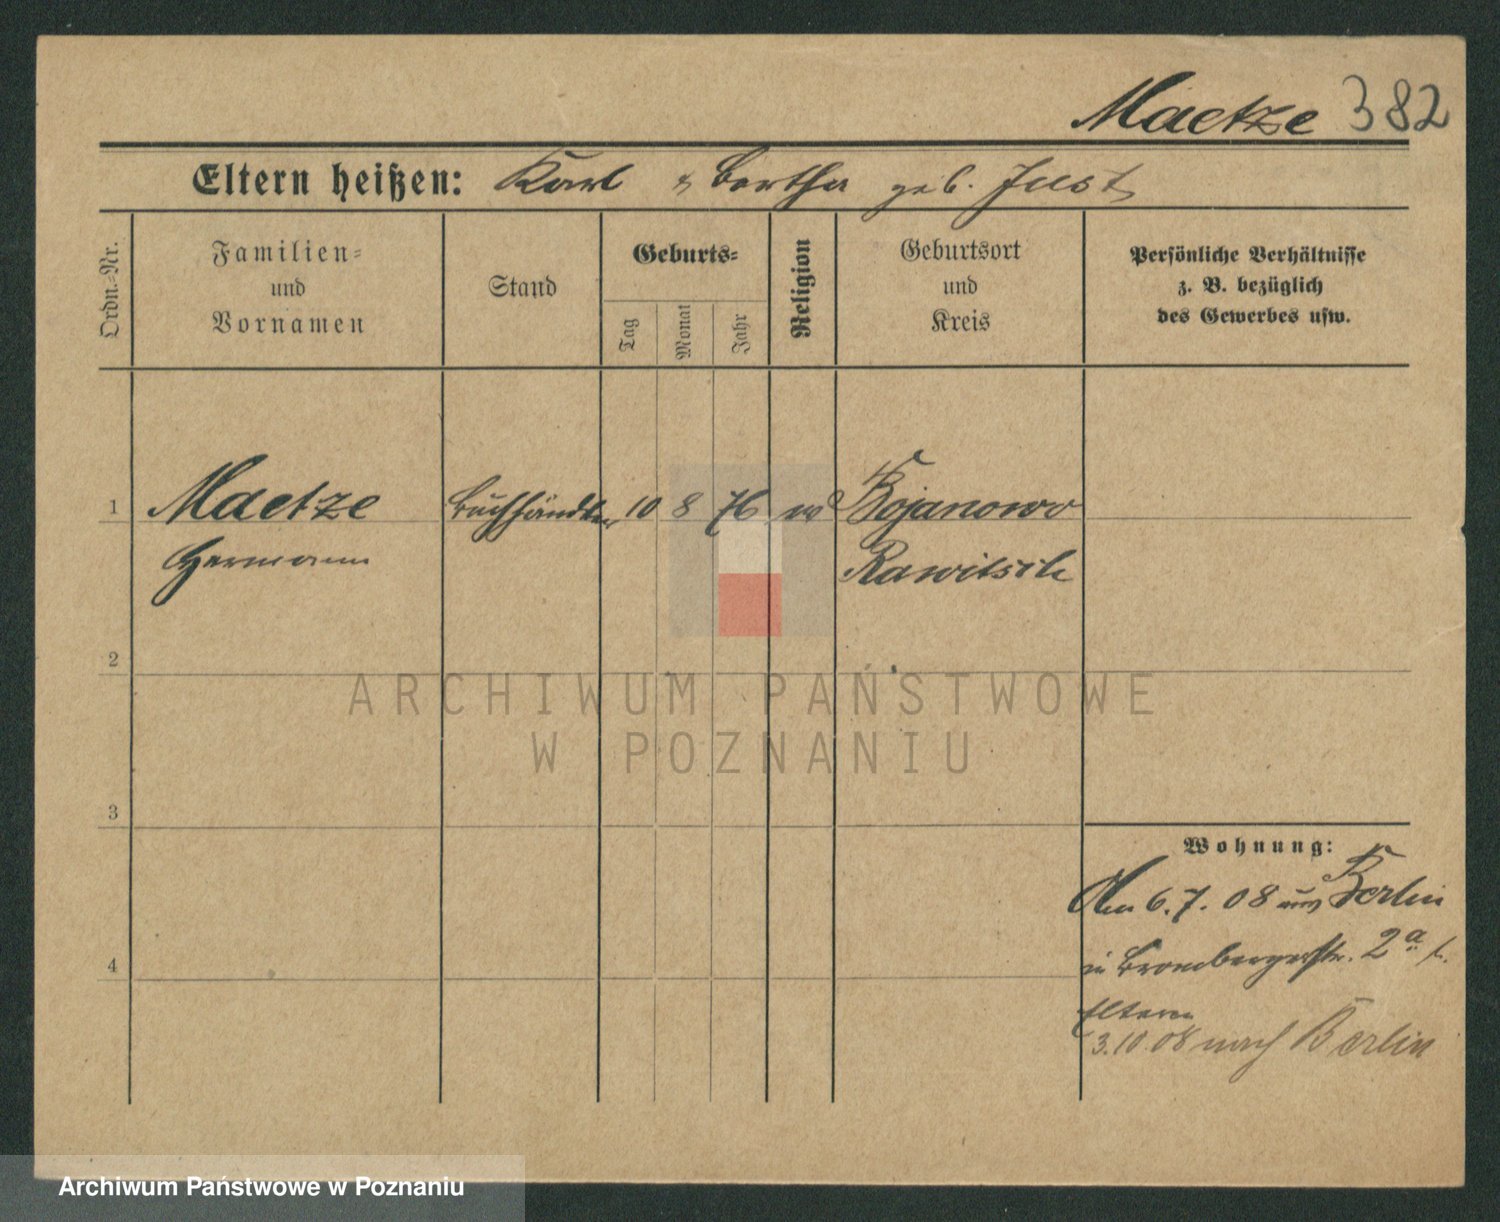 Maetze 382
Eltern heißen: Karl & Bertha geb. Just
Ordn.-Nr.
Familien-
und
Vornamen
Stand
Geburts-
Tag
Monat
Jahr
Religion
Geburtsort
und
Kreis
Persönliche Verhältnisse
z. B. bezüglich
des Gewerbes usw.
1 Maetze Buchhändler 10 8 76 Bojanowo
Hermann Rawitsch
2
3
4
Wohnung:
Am 6.7.08 aus Berlin
in Brombergerstr. 2a b.
Eltern
3.10.08 nach Berlin
ARCHIWUM PAŃSTWOWE
W POZNANIU
Archiwum Państwowe w Poznaniu